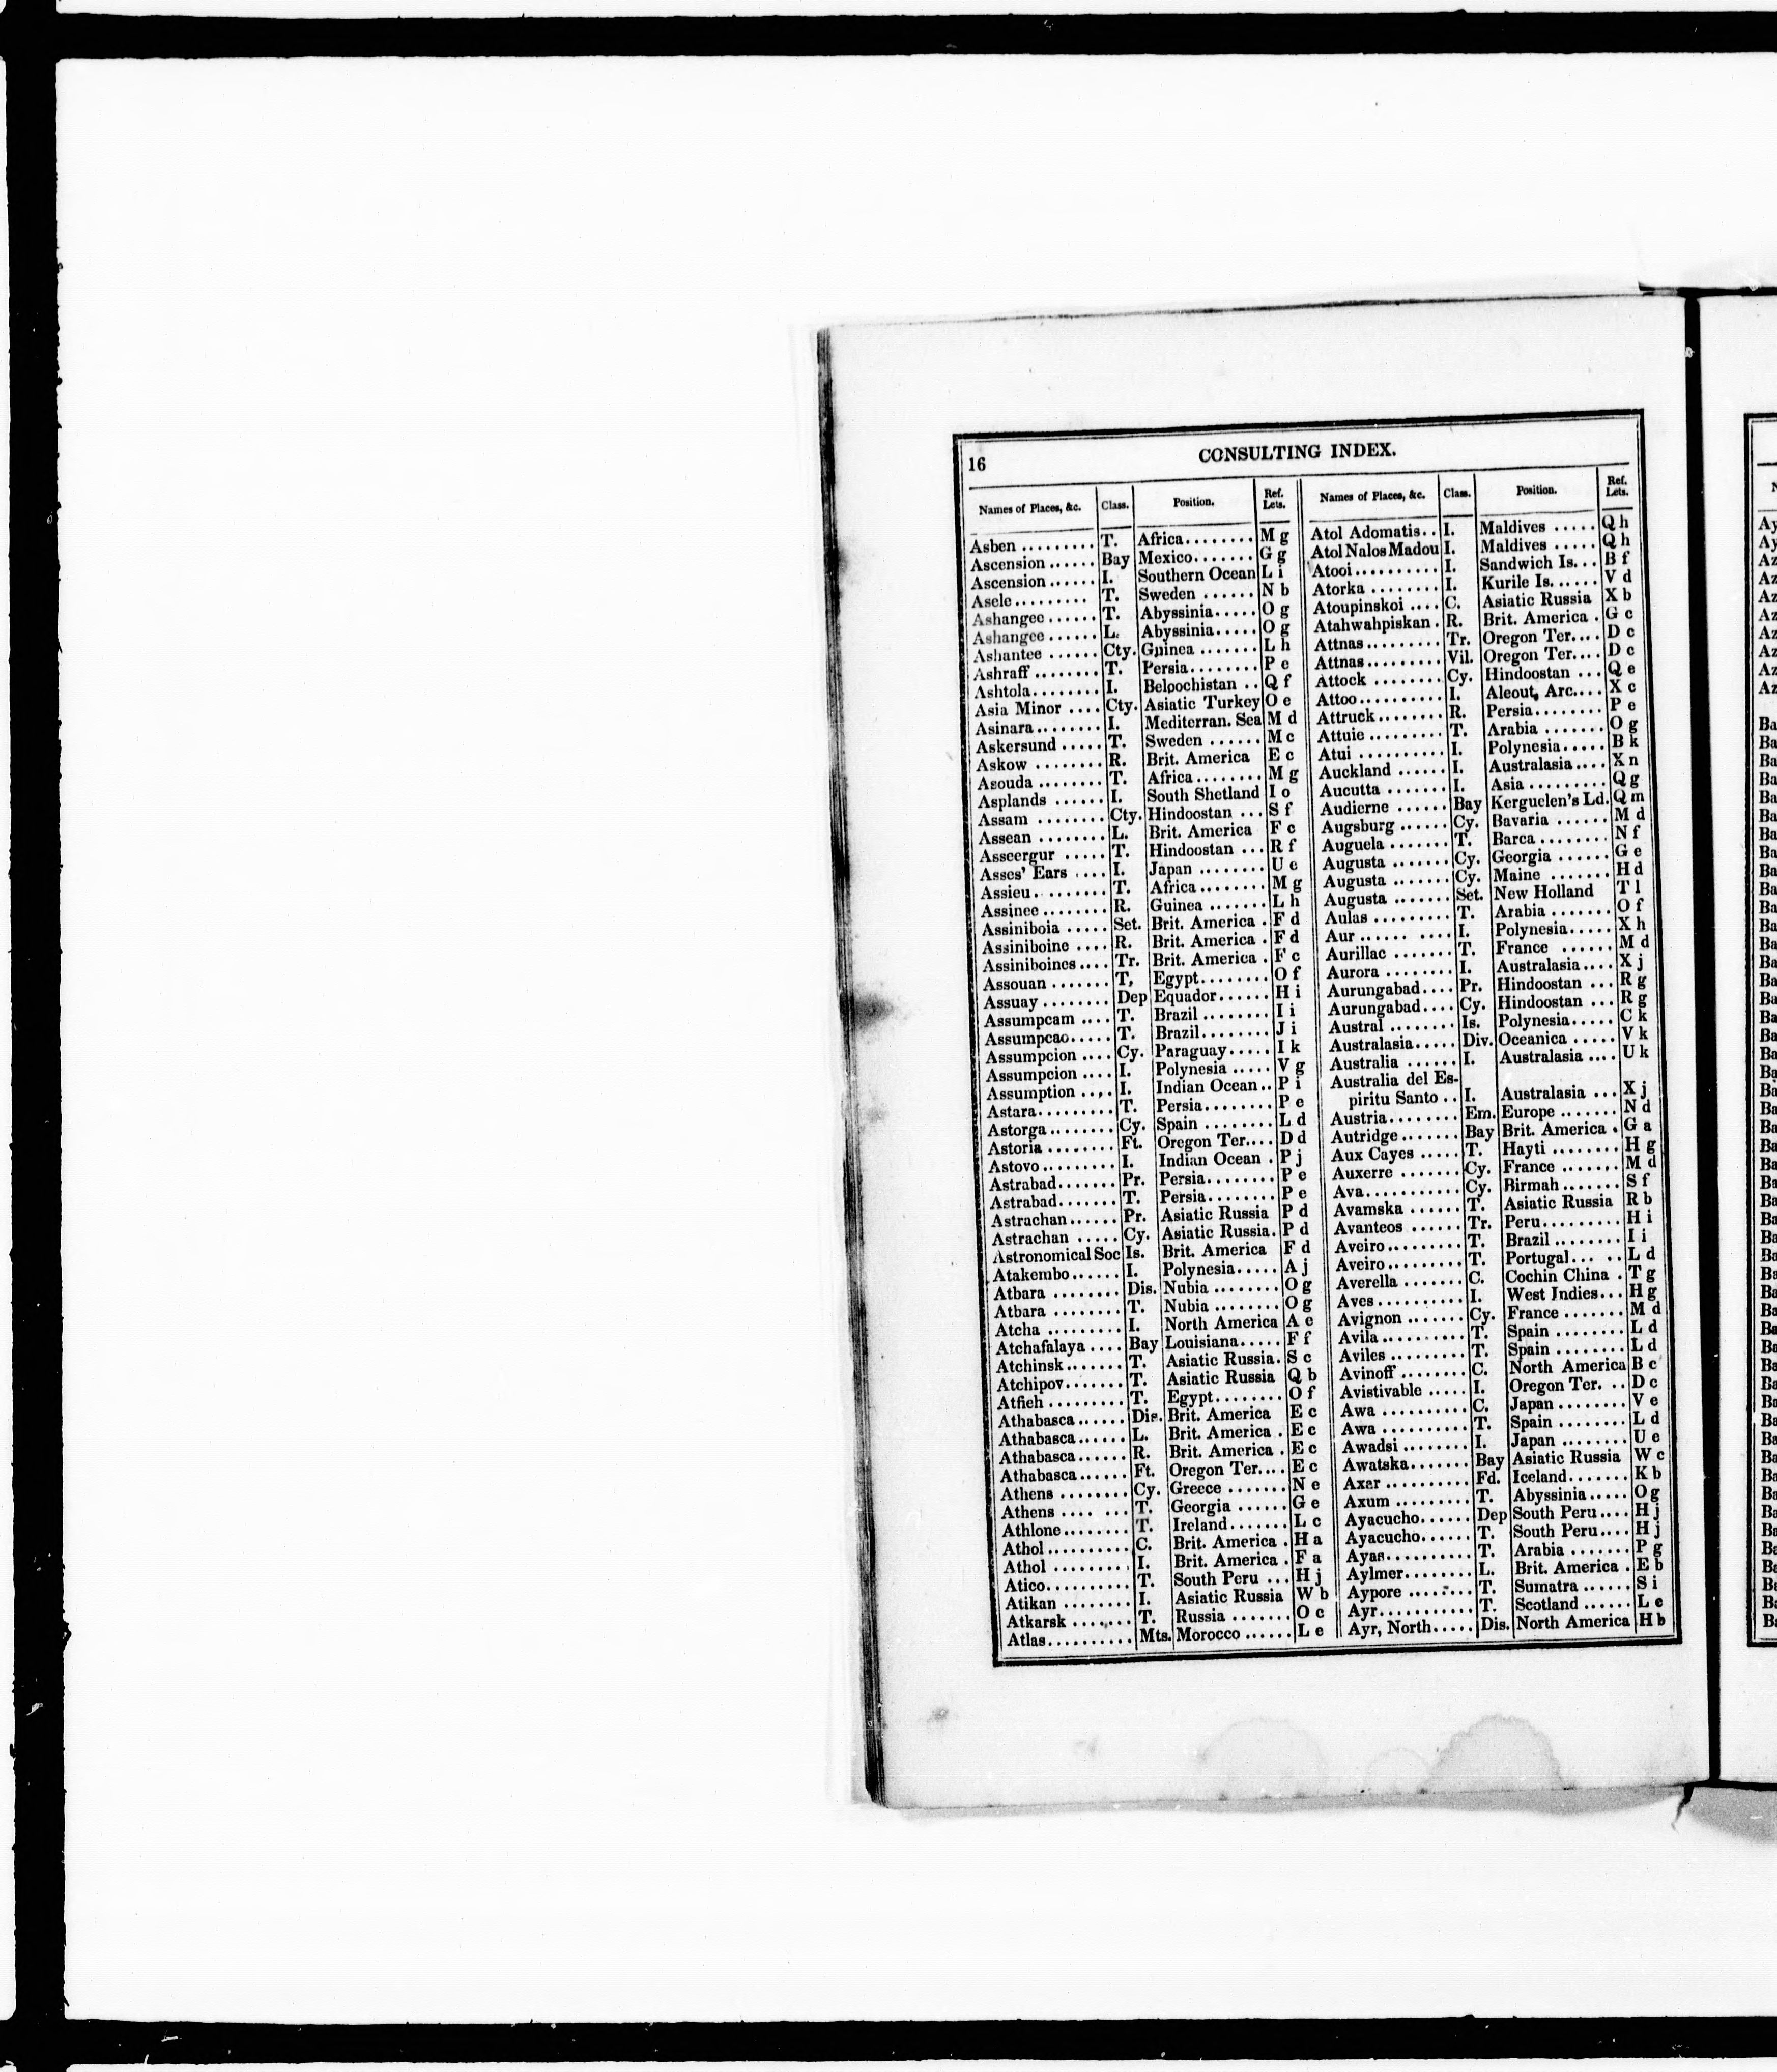 16
CONSULTING INDEX.
Names of Places, &c. Class. Position. Ref. Lets.
Asben ......... T. Africa........ M g
Ascension ...... Bay Mexico....... G g
Ascension ...... I. Southern Ocean L i
Asele......... T. Sweden ...... N b
Ashangee ...... T. Abyssinia..... O g
Ashangee ...... L. Abyssinia..... O g
Ashantee ...... Cty. Guinea ....... L h
Ashraff ........ T. Persia........ P e
Ashtola........ I. Beloochistan .. Q f
Asia Minor .... Cty. Asiatic Turkey O e
Asinara........ I. Mediterran. Sea M d
Askersund ..... T. Sweden ...... M c
Askow ........ R. Brit. America E c
Asouda ........ T. Africa........ M g
Asplands ...... I. South Shetland I o
Assam ........ Cty. Hindoostan ... S f
Assean ........ L. Brit. America F c
Asseergur ..... T. Hindoostan ... R f
Asses' Ears .... I. Japan ........ U e
Assieu......... T. Africa........ M g
Assinee ........ R. Guinea ....... L h
Assiniboia ..... Set. Brit. America . F d
Assiniboine .... R. Brit. America . F d
Assiniboines.... Tr. Brit. America . F c
Assouan ....... T, Egypt........ O f
Assuay ........ Dep Equador...... H i
Assumpcam .... T. Brazil ........ I i
Assumpcao..... T. Brazil........ J i
Assumpcion .... Cy. Paraguay..... I k
Assumpcion .... I. Polynesia ..... V g
Assumption .... I. Indian Ocean.. P i
Astara......... T. Persia........ P e
Astorga........ Cy. Spain ........ L d
Astoria ........ Ft. Oregon Ter.... D d
Astovo......... I. Indian Ocean . P j
Astrabad....... Pr. Persia........ P e
Astrabad....... T. Persia........ P e
Astrachan...... Pr. Asiatic Russia P d
Astrachan ..... Cy. Asiatic Russia. P d
Astronomical Soc Is. Brit. America F d
Atakembo...... I. Polynesia..... A j
Atbara ........ Dis. Nubia ........ O g
Atbara ........ T. Nubia ........ O g
Atcha ......... I. North America A e
Atchafalaya .... Bay Louisiana..... F f
Atchinsk....... T. Asiatic Russia. S c
Atchipov....... T. Asiatic Russia Q b
Atfieh ......... T. Egypt........ O f
Athabasca...... Dis. Brit. America E c
Athabasca...... L. Brit. America . E c
Athabasca...... R. Brit. America . E c
Athabasca...... Ft. Oregon Ter.... E c
Athens ........ Cy. Greece ....... N e
Athens .... ... T. Georgia ...... G e
Athlone........ T. Ireland....... L c
Athol.......... C. Brit. America . H a
Athol ......... I. Brit. America . F a
Atico.......... T. South Peru ... H j
Atikan ........ I. Asiatic Russia W b
Atkarsk ....... T. Russia ....... O c
Atlas.......... Mts. Morocco ...... L e
Names of Places, &c. Class. Position. Ref. Lets.
Atol Adomatis.. I. Maldives ..... Q h
Atol Nalos Madou I. Maldives ..... Q h
Atooi.......... I. Sandwich Is... B f
Atorka ........ I. Kurile Is...... V d
Atoupinskoi .... C. Asiatic Russia X b
Atahwahpiskan . R. Brit. America . G c
Attnas......... Tr. Oregon Ter.... D c
Attnas......... Vil. Oregon Ter.... D c
Attock ........ Cy. Hindoostan ... Q e
Attoo.......... I. Aleout. Arc.... X c
Attruck........ R. Persia........ P e
Attuie ......... T. Arabia ....... O g
Atui .......... I. Polynesia..... B k
Auckland ...... I. Australasia.... X n
Aucutta ....... I. Asia ......... Q g
Audierne ...... Bay Kerguelen's Ld. Q m
Augsburg ...... Cy. Bavaria ...... M d
Auguela....... T. Barca........ N f
Augusta ....... Cy. Georgia ...... G e
Augusta ....... Cy. Maine ....... H d
Augusta ....... Set. New Holland T l
Aulas ......... T. Arabia ....... O f
Aur...... .... I. Polynesia..... X h
Aurillac ....... T. France ...... M d
Aurora ........ I. Australasia.... X j
Aurungabad.... Pr. Hindoostan ... R g
Aurungabad.... Cy. Hindoostan ... R g
Austral ........ Is. Polynesia..... C k
Australasia..... Div. Oceanica ..... V k
Australia ...... I. Australasia .... U k
Australia del Es-
piritu Santo .. I. Australasia ... X j
Austria........ Em. Europe ....... N d
Autridge....... Bay Brit. America . G a
Aux Cayes ..... T. Hayti ........ H g
Auxerre ....... Cy. France ....... M d
Ava........... Cy. Birmah ....... S f
Avamska ...... T. Asiatic Russia R b
Avanteos ...... Tr. Peru......... H i
Aveiro......... T. Brazil ........ I i
Aveiro......... T. Portugal... .. L d
Averella ....... C. Cochin China . T g
Aves.......... I. West Indies... H g
Avignon ....... Cy. France ....... M d
Avila.......... T. Spain ........ L d
Aviles ......... T. Spain ........ L d
Avinoff ........ C. North America B c
Avistivable ..... I. Oregon Ter. ... D c
Awa .......... C. Japan ........ V e
Awa .......... T. Spain ........ L d
Awadsi ........ I. Japan ........ U e
Awatska....... Bay Asiatic Russia W c
Axar .......... Fd. Iceland....... K b
Axum ......... T. Abyssinia..... O g
Ayacucho...... Dep South Peru.... H j
Ayacucho...... T. South Peru.... H j
Ayas.......... T. Arabia ....... P g
Aylmer........ L. Brit. America . E b
Aypore ........ T. Sumatra ...... S i
Ayr........... T. Scotland ...... L e
Ayr, North..... Dis. North America H b